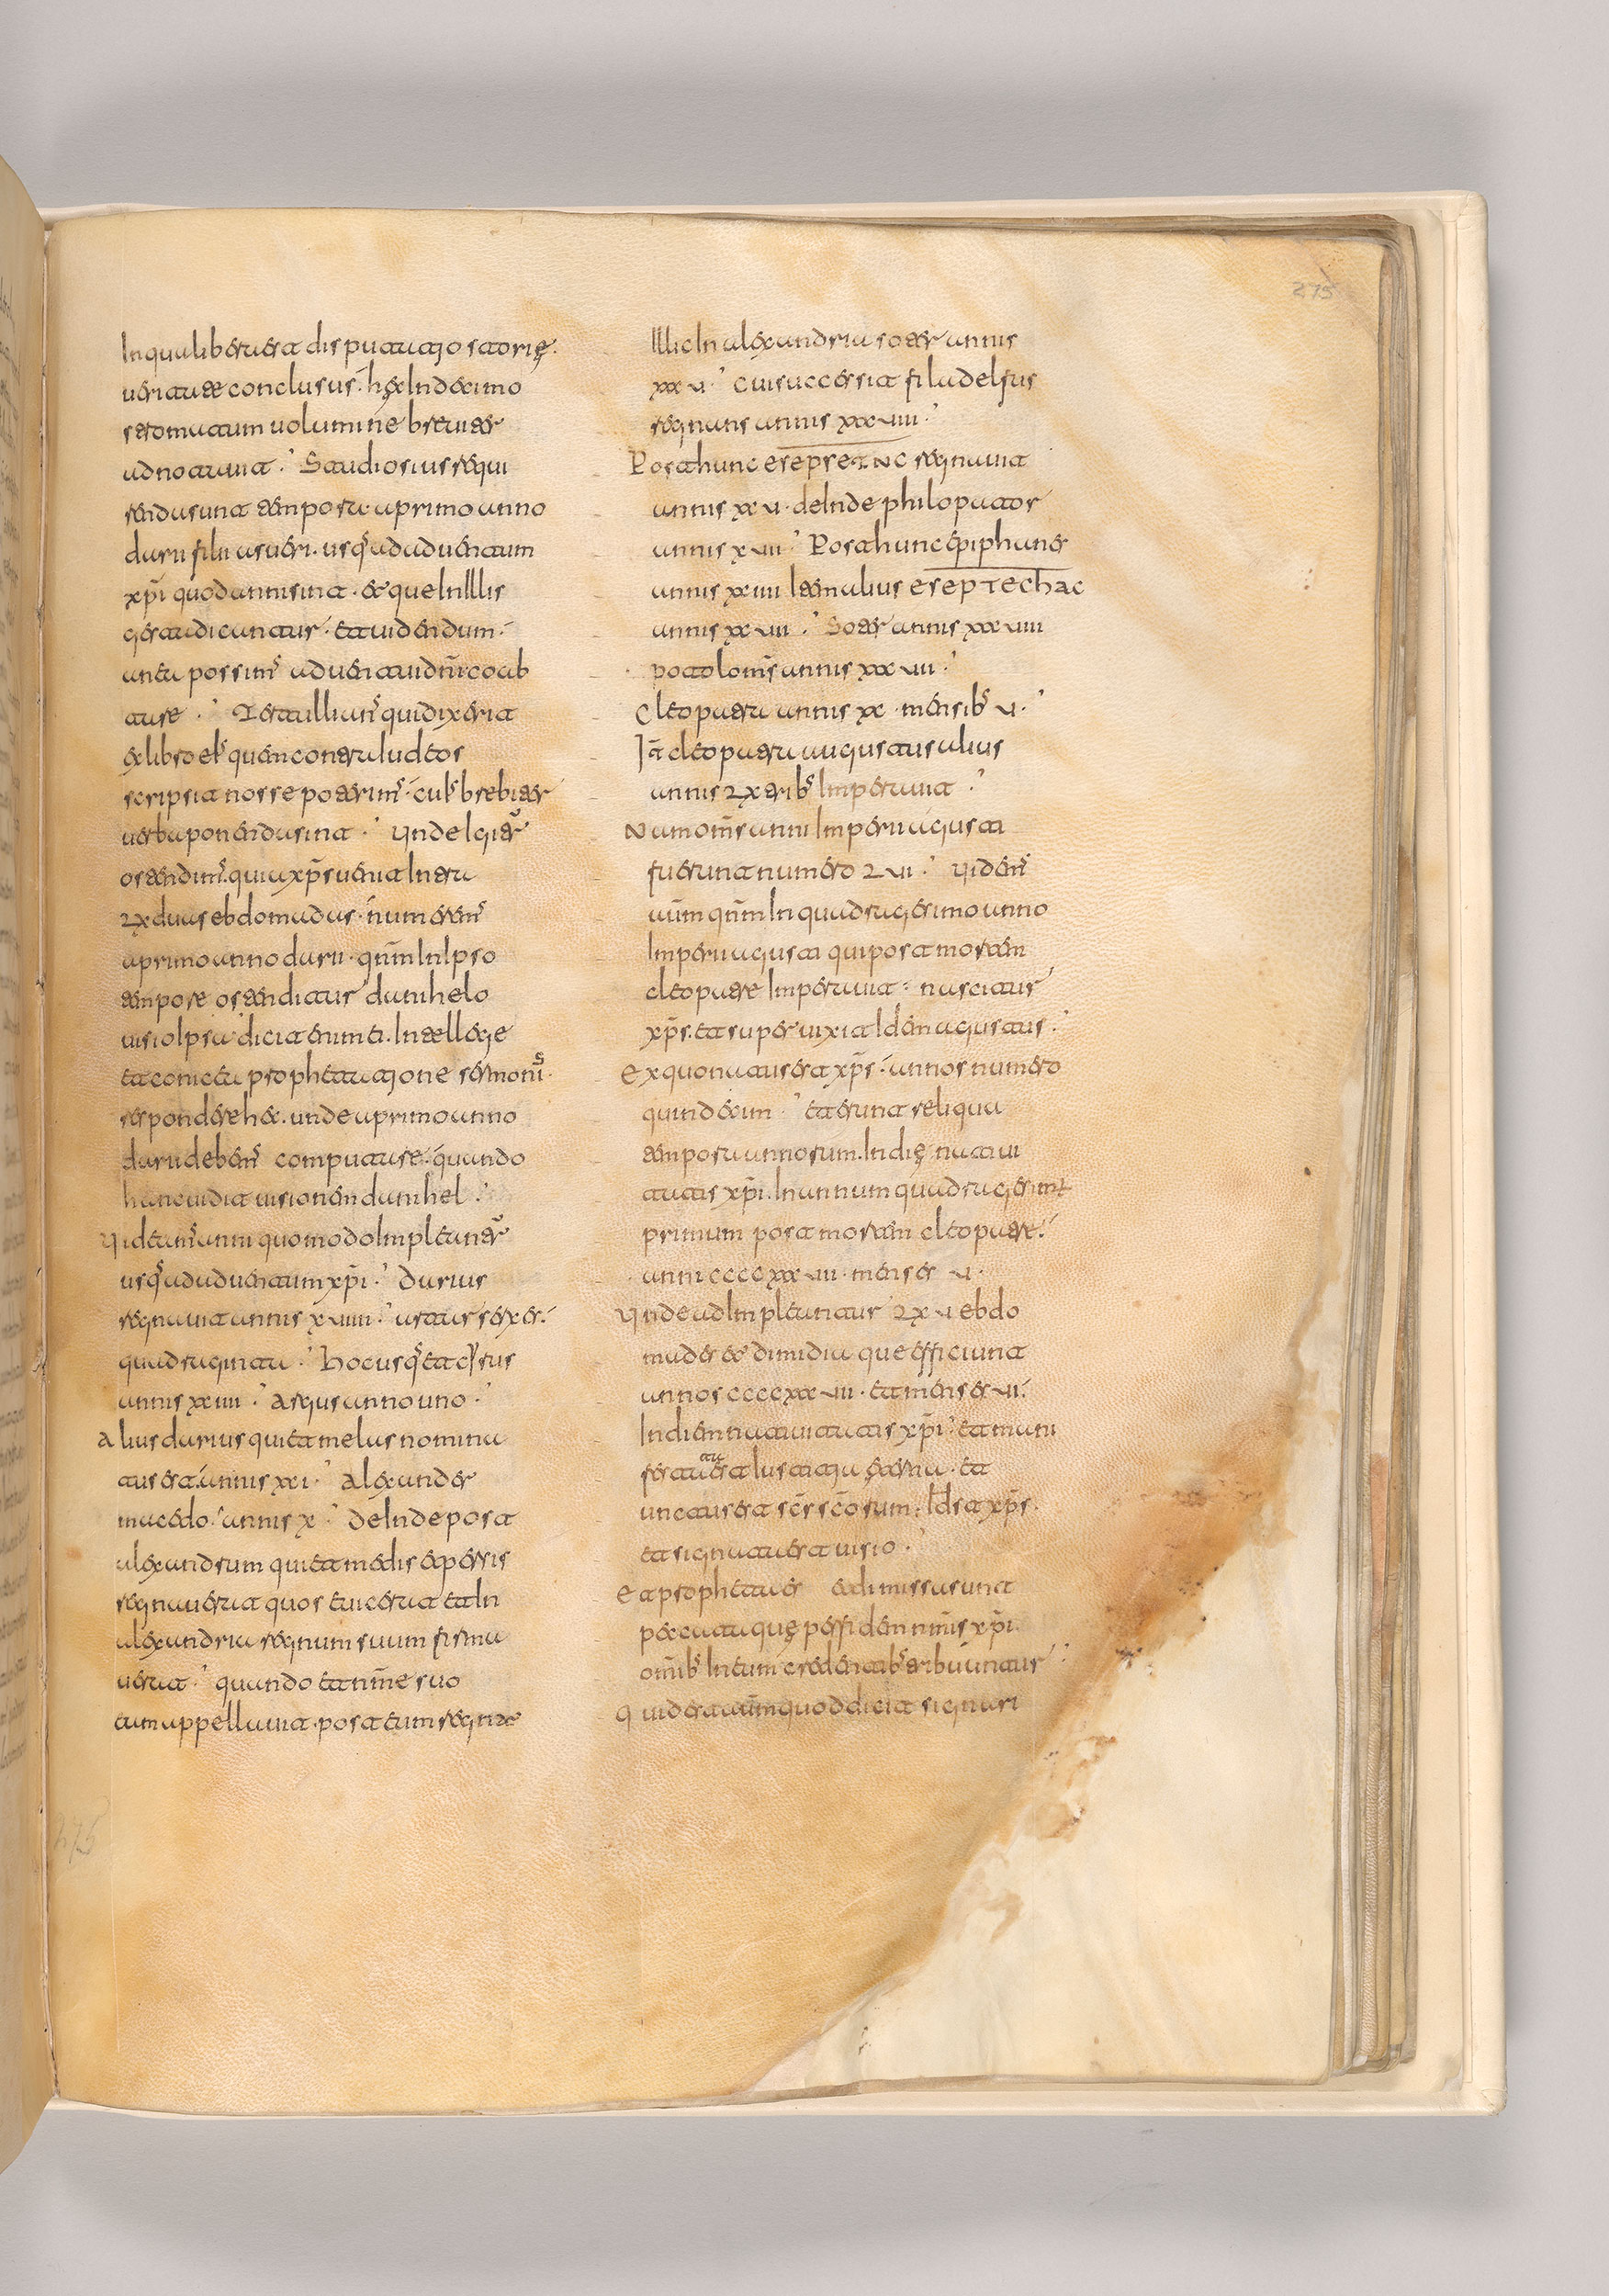 In qua liber uerat disputatjo storię·
ueritate conclusus· hęc In decimo
stromatum uolumine breuiter
adnotauit· Studiosius requi
renda sunt tempora· a primo anno
darii filii asueri· usqꝫ ad aduentum
xp̄i quod annis int· et que In Illis
gesta dicantur· et uidendum·
an ea possimꝰ aduentui dn̄ico ab
tare· Tertullianꝰ quid ixerit
ex libro eiꝰ quem contra Iudeos
scripsit nosse poterimꝰ· cuiꝰ brebiter
uerba ponenda sint· Vnde Igitᷣ
ostendimꝰ· quia xp̄s uenit Intra
lx duas ebdomadas· numeremꝰ
a primo anno darii· qn̄m In Ipso
tempore ostenditur danihelo
uisio Ipsa dicit enim ei· Intellege
et coniecta prophetatjone sermonū
respondere hec· unde a primo anno
darii debemꝰ computare· quando
hanc uidit uisionem danihel·
Videamꝰ anni quomodo Impleantᷣ
usqꝫ ad aduentum xp̄i· Darius
regnauit annis xuiiii· artarserxes·
quadraginta· hocusqꝫ et cyrus
annis xxiiii· Argus anno uno·
Alius darius qui et melus nomina
tus est· annis xxi· Alexander
macedo· annis x· Deinde post
alexandrum qui et medis et persis
regnauerat quos euicerat et In
alexandria regnum suum firma
uerat· quando et nm̄ne suo
eam appellauit· post eum regnat
Illic In alexandria soter annis
xxxu· Cui successit filadelfus
regnans annis xxxuiii·
Post hunc esepretnc regnauit
annis xxu· deInde philopator
annis xuii· Post hunc epiphanes
annis xxiiii Item alius eseptechac
annis xxuii· Soter annis xxxuiii
potolom̄s annis xxxuii·
Cleopatra annis xx· mensibꝰ u·
It̄ cleopatra augustus alius
annis lx tribꝰ Imperauit·
Nam om̄s anni Imperii agusti
fuerunt numero lui· Videmꝰ
aūm qn̄m In quadragesimo anno
Imperii agusti qui post mortem
cleopatre Imperauit· nascitur
xp̄s· et superuixit Idem agustus·
Ex quo natus est xp̄s· annos numero
quindecim· et erunt reliqua
tempora annorum· In dię natiui
tatis xp̄i· In annum quadragesim̄
primum post mortem cleopatre·
anni ccccxxxuii· menses u·
Vnde ad Impleantur lxu ebdo
mades et dimidia que efficiunt
annos ccccxxxuii· et menses ui·
In diem natiuitatis xp̄i· et mani
festata est Iustitja ęterna· et
unctus est sc̄s sc̄orum· Id̄st xp̄s·
et signata est uisio·
Et prophetaes et dimissa sunt
peccata quę per fidem nm̄is xp̄i·
om̄ibꝰ In eum credentibꝰ tribuuntur·
Quid est aūm quod dicit signari
275